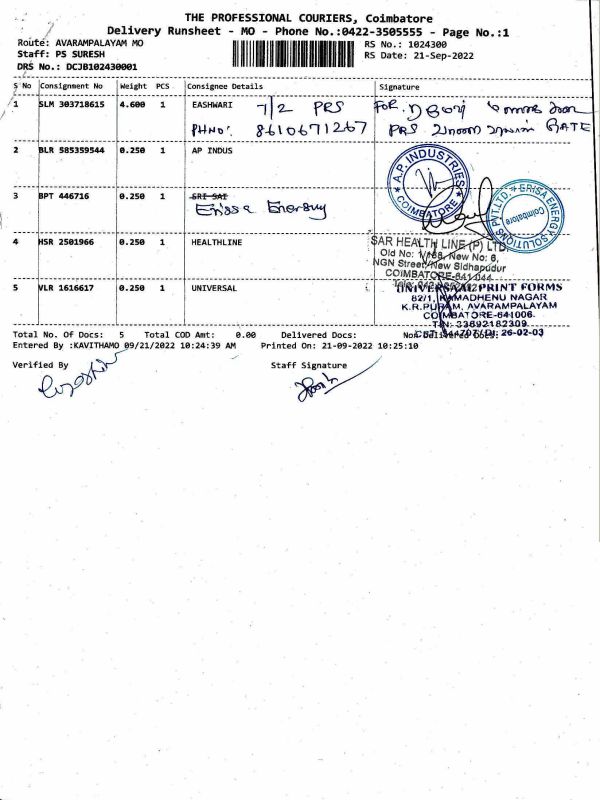 THE PROFESSIONAL COURIERS, Coimbatore
Delivery Runsheet - MO - Phone No.:0422-3505555 - Page No.:1
Route: AVARAMPALAYAM MO
RS No.: 1024300
Staff: PS SURESH
RS Date: 21-Sep-2022
DRS No.: DCJB102430001
S No Consignment No Weight PCS Consignee Details Signature
1 SLM 303718615 4.600 1 EASHWARI 7/2 PRS FOR.
PHNO: 8610671267 PRS GATE
2 BLR 585359544 0.250 1 AP INDUS
A.P. INDUSTRIES
COIMBATORE
3 BPT 446716 0.250 1 SRI SAI
Erissa Energy
ERISA ENERGY SOLUTIONS PVT.LTD
Coimbatore
4 HSR 2501966 0.250 1 HEALTHLINE
SAR HEALTH LINE (P) LTD.
Old No: 1/168, New No: 6,
NGN Street, New Sidhapudur
COIMBATORE-641 044
5 VLR 1616617 0.250 1 UNIVERSAL
UNIVERSAAL PRINT FORMS
82/1, KAMADHENU NAGAR
K.R.PURAM, AVARAMPALAYAM
COIMBATORE-641006.
TIN: 33692182309
Dt: 26-02-03
Total No. Of Docs: 5 Total COD Amt: 0.00 Delivered Docs: Non Delivered Docs:
Entered By :KAVITHAMO 09/21/2022 10:24:39 AM Printed On: 21-09-2022 10:25:10
Verified By Staff Signature